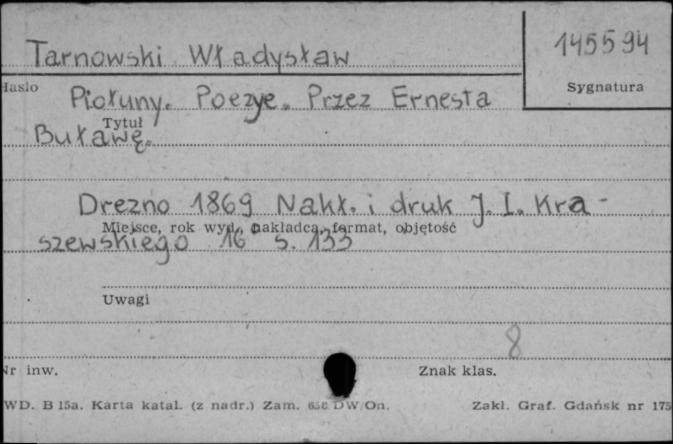 Tarnowski Władysław
145594
Hasło
Sygnatura
Piołuny. Poezye. Przez Ernesta
Tytuł
Buławę.
Drezno 1869 Nakł. i druk J. I. Kra-
Miejsce, rok wyd., nakładca, format, objętość
szewskiego 16° s. 133
Uwagi
8
Nr inw.
Znak klas.
WD. B 15a. Karta katal. (z nadr.) Zam. DW/On.
Zakł. Graf. Gdańsk nr 175